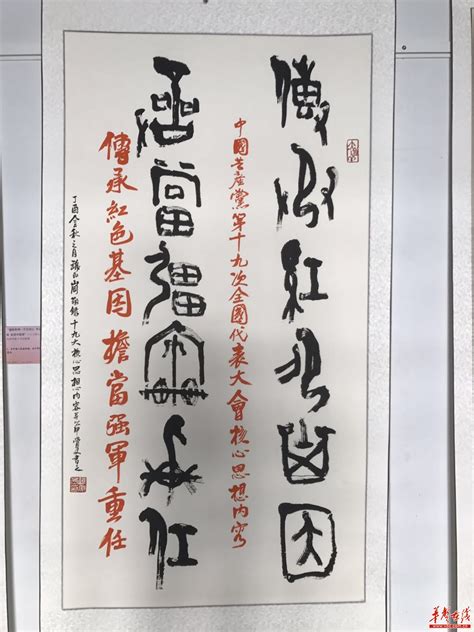 傳承紅色基因
中國共產黨第十九次全國代表大會核心思想內容
擔當強軍重任
傳承紅色基因擔當强軍重任
丁酉金秋之月 十九大核心思想內容